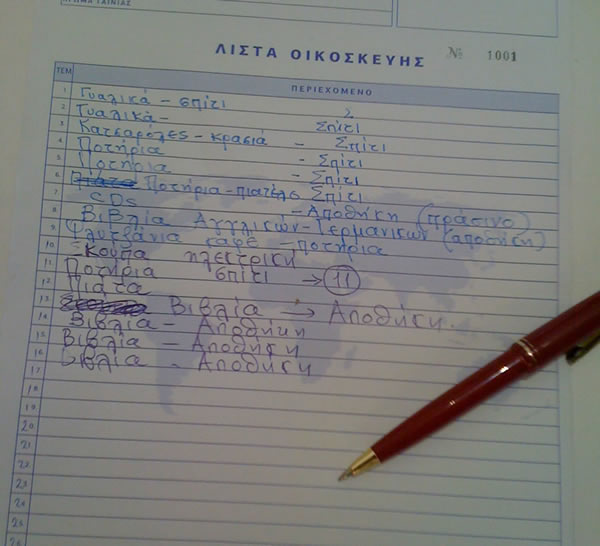 ΛΙΣΤΑ ΟΙΚΟΣΚΕΥΗΣ
№ 1001
ΤΕΜ ΠΕΡΙΕΧΟΜΕΝΟ
1 Γυαλικά - σπίτι
2 Γυαλικά - Σπίτι
3 Κατσαρόλες - κρασιά - Σπίτι
4 Ποτήρια - Σπίτι
5 Ποτήρια - Σπίτι
6 Ποτήρια - πιατέλες Σπίτι
7 CDs - Αποθήκη (πράσινο)
8 Βιβλία Αγγλικών - Γερμανικών (αποθήκη)
9 Φλυτζάνια καφέ - ποτήρια
10 Σκούπα ηλεκτρική
11 Ποτήρια σπίτι → 11
12 Πιάτα
13 Βιβλία → Αποθήκη.
14 Βιβλία - Αποθήκη
15 Βιβλία - Αποθήκη
16 Βιβλία - Αποθήκη
17
18
19
20
21
22
23
24
25